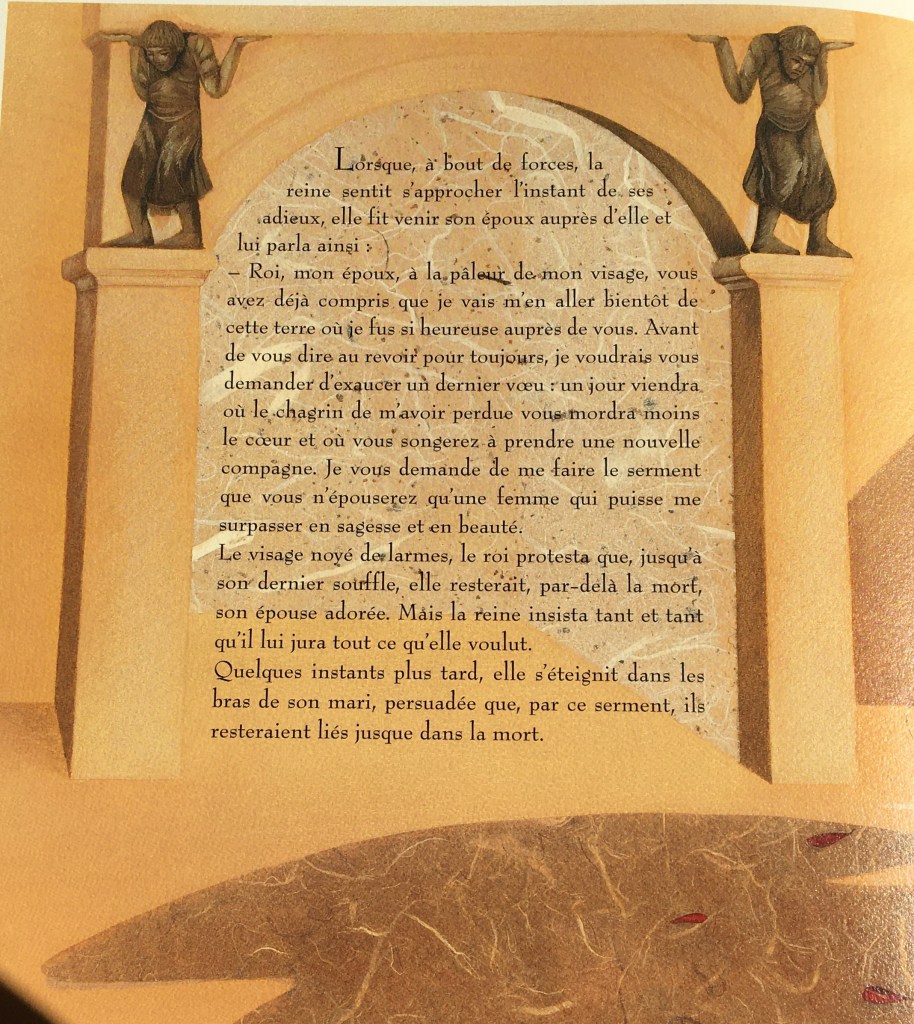 Lorsque, à bout de forces, la
reine sentit s'approcher l'instant de ses
adieux, elle fit venir son époux auprès d'elle et
lui parla ainsi :
– Roi, mon époux, à la pâleur de mon visage, vous
avez déjà compris que je vais m'en aller bientôt de
cette terre où je fus si heureuse auprès de vous. Avant
de vous dire au revoir pour toujours, je voudrais vous
demander d'exaucer un dernier vœu : un jour viendra
où le chagrin de m'avoir perdue vous mordra moins
le cœur et où vous songerez à prendre une nouvelle
compagne. Je vous demande de me faire le serment
que vous n'épouserez qu'une femme qui puisse me
surpasser en sagesse et en beauté.
Le visage noyé de larmes, le roi protesta que, jusqu'à
son dernier souffle, elle resterait, par-delà la mort,
son épouse adorée. Mais la reine insista tant et tant
qu'il lui jura tout ce qu'elle voulut.
Quelques instants plus tard, elle s'éteignit dans les
bras de son mari, persuadée que, par ce serment, ils
resteraient liés jusque dans la mort.